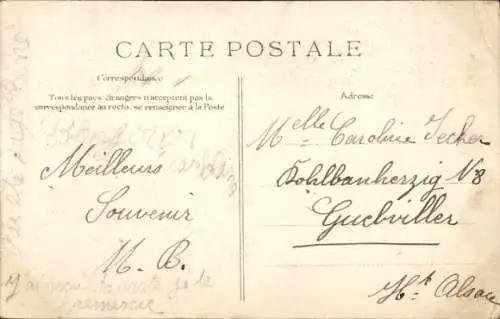 CARTE POSTALE
Correspondance
Tous les pays étrangers n'acceptent pas la
correspondance au recto, se renseigner à la Poste
Adresse
Meilleurs
Souvenir
M. B.
Melle Caroline Jecker
Kohlbanherzig N 8
Guebviller
Ht Alsace
J'ai reçu la carte je te
remercie